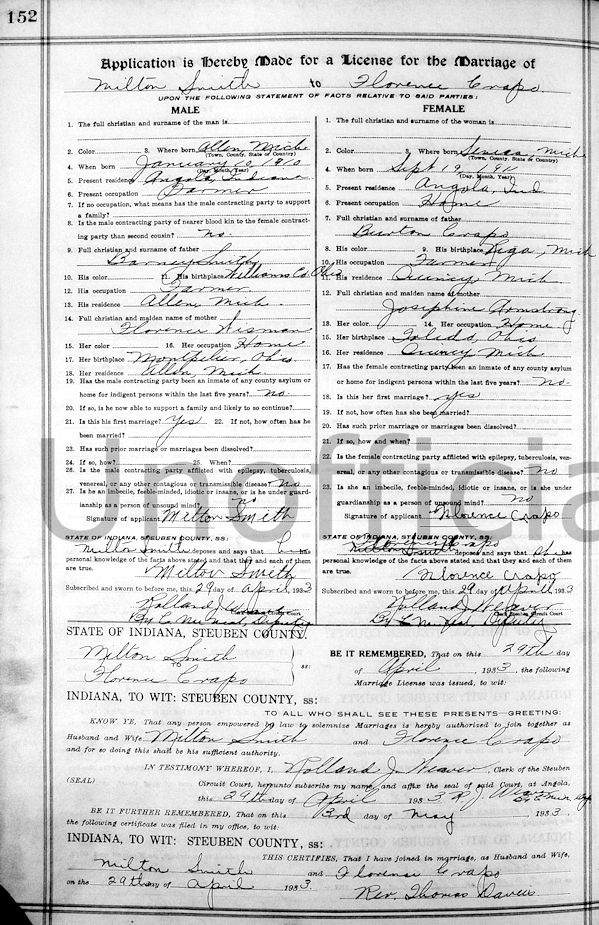 152
Application is Hereby Made for a License for the Marriage of
Milton Smith to Florence Crapo
UPON THE FOLLOWING STATEMENT OF FACTS RELATIVE TO SAID PARTIES:
MALE
1. The full christian and surname of the man is
2. Color 3. Where born Allen, Mich
(Town, County, State or Country)
4. When born January 10, 1910
(Day, Month, Year)
5. Present residence Angola, Indiana
6. Present occupation Farmer
7. If no occupation, what means has the male contracting party to support
a family?
8. Is the male contracting party of nearer blood kin to the female contract-
ing party than second cousin? No.
9. Full christian and surname of father
Barney Smith
10. His color 11. His birthplace Williams Co. Ohio
12. His occupation Farmer
13. His residence Allen, Mich.
14. Full christian and maiden name of mother
Florence Wisman
15. Her color 16. Her occupation Home
17. Her birthplace Montpelier, Ohio.
18. Her residence Allen, Mich
19. Has the male contracting party been an inmate of any county asylum or
home for indigent persons within the last five years? no.
20. If so, is he now able to support a family and likely to so continue?
21. Is this his first marriage? Yes 22. If not, how often has he
been married?
23. Has such prior marriage or marriages been dissolved?
24. If so, how? 25. When?
26. Is the male contracting party afflicted with epilepsy, tuberculosis,
venereal, or any other contagious or transmissible disease? No
27. Is he an imbecile, feeble-minded, idiotic or insane, or is he under guard-
ianship as a person of unsound mind? no
Signature of applicant Milton Smith
STATE OF INDIANA, STEUBEN COUNTY, ss:
Milton Smith deposes and says that he has
personal knowledge of the facts above stated and that they and each of them
are true.
Milton Smith
Subscribed and sworn to before me, this 29 day of April, 1933
Rolland J. Weaver
By C. Deputy
FEMALE
1. The full christian and surname of the woman is
2. Color 3. Where born Seneca, Mich
(Town, County, State or Country)
4. When born Sept 19, 1911
(Day, Month, Year)
5. Present residence Angola, Ind
6. Present occupation Home
7. Full christian and surname of father
Burton Crapo
8. His color 9. His birthplace Riga, Mich
10. His occupation Farmer
11. His residence Quincy, Mich
12. Full christian and maiden name of mother
Josephine Armstrong
13. Her color 14. Her occupation Home
15. Her birthplace Toledo, Ohio
16. Her residence Quincy Mich
17. Has the female contracting party been an inmate of any county asylum
or home for indigent persons within the last five years? no.
18. Is this her first marriage? yes
19. If not, how often has she been married?
20. Has such prior marriage or marriages been dissolved?
21. If so, how and when?
22. Is the female contracting party afflicted with epilepsy, tuberculosis, ven-
ereal, or any other contagious or transmissible disease? no
23. Is she an imbecile, feeble-minded, idiotic or insane, or is she under
guardianship as a person of unsound mind? no
Signature of applicant Florence Crapo
STATE OF INDIANA, STEUBEN COUNTY, ss:
Florence Crapo
Milton Smith deposes and says that she has
personal knowledge of the facts above stated and that they and each of them
are true.
Florence Crapo
Subscribed and sworn to before me, this 29 day of April, 1933
Rolland J. Weaver
Clerk Steuben Circuit Court
By C. Deputy
STATE OF INDIANA, STEUBEN COUNTY,
Milton Smith
TO
Florence Crapo
ss:
BE IT REMEMBERED, That on this 29th day
of April, 1933, the following
Marriage License was issued, to wit:
INDIANA, TO WIT: STEUBEN COUNTY, ss:
TO ALL WHO SHALL SEE THESE PRESENTS—GREETING:
KNOW YE, That any person empowered by law to solemnize Marriages is hereby authorized to join together as
Husband and Wife Milton Smith and Florence Crapo
and for so doing this shall be his sufficient authority.
IN TESTIMONY WHEREOF, I, Rolland J. Weaver, Clerk of the Steuben
(SEAL) Circuit Court, hereunto subscribe my name, and affix the seal of said Court, at Angola,
this 29th day of April 1933 R. J. Weaver
BE IT FURTHER REMEMBERED, That on this 3rd day of May 1933.
the following certificate was filed in my office, to wit:
INDIANA, TO WIT: STEUBEN COUNTY, ss:
THIS CERTIFIES, That I have joined in marriage, as Husband and Wife,
Milton Smith and Florence Crapo
on the 29th day of April 1933.
Rev. Thomas